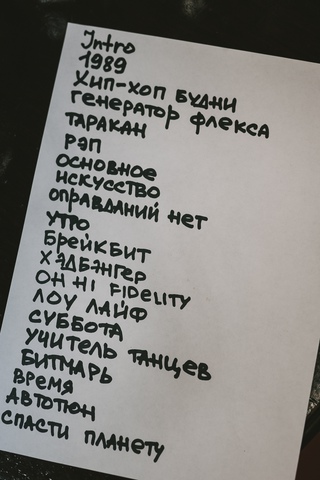 Intro
1989
ХИП-ХОП БУДНИ
ГЕНЕРАТОР ФЛЕКСА
ТАРАКАН
РЭП
ОСНОВНОЕ
ИСКУССТВО
ОПРАВДАНИЙ НЕТ
УТРО
БРЕЙКБИТ
ХЭДБЭНГЕР
OH HI FIDELITY
ЛОУ ЛАЙФ
СУББОТА
УЧИТЕЛЬ ТАНЦЕВ
БИТМАРЬ
ВРЕМЯ
АВТОТЮН
СПАСТИ ПЛАНЕТУ